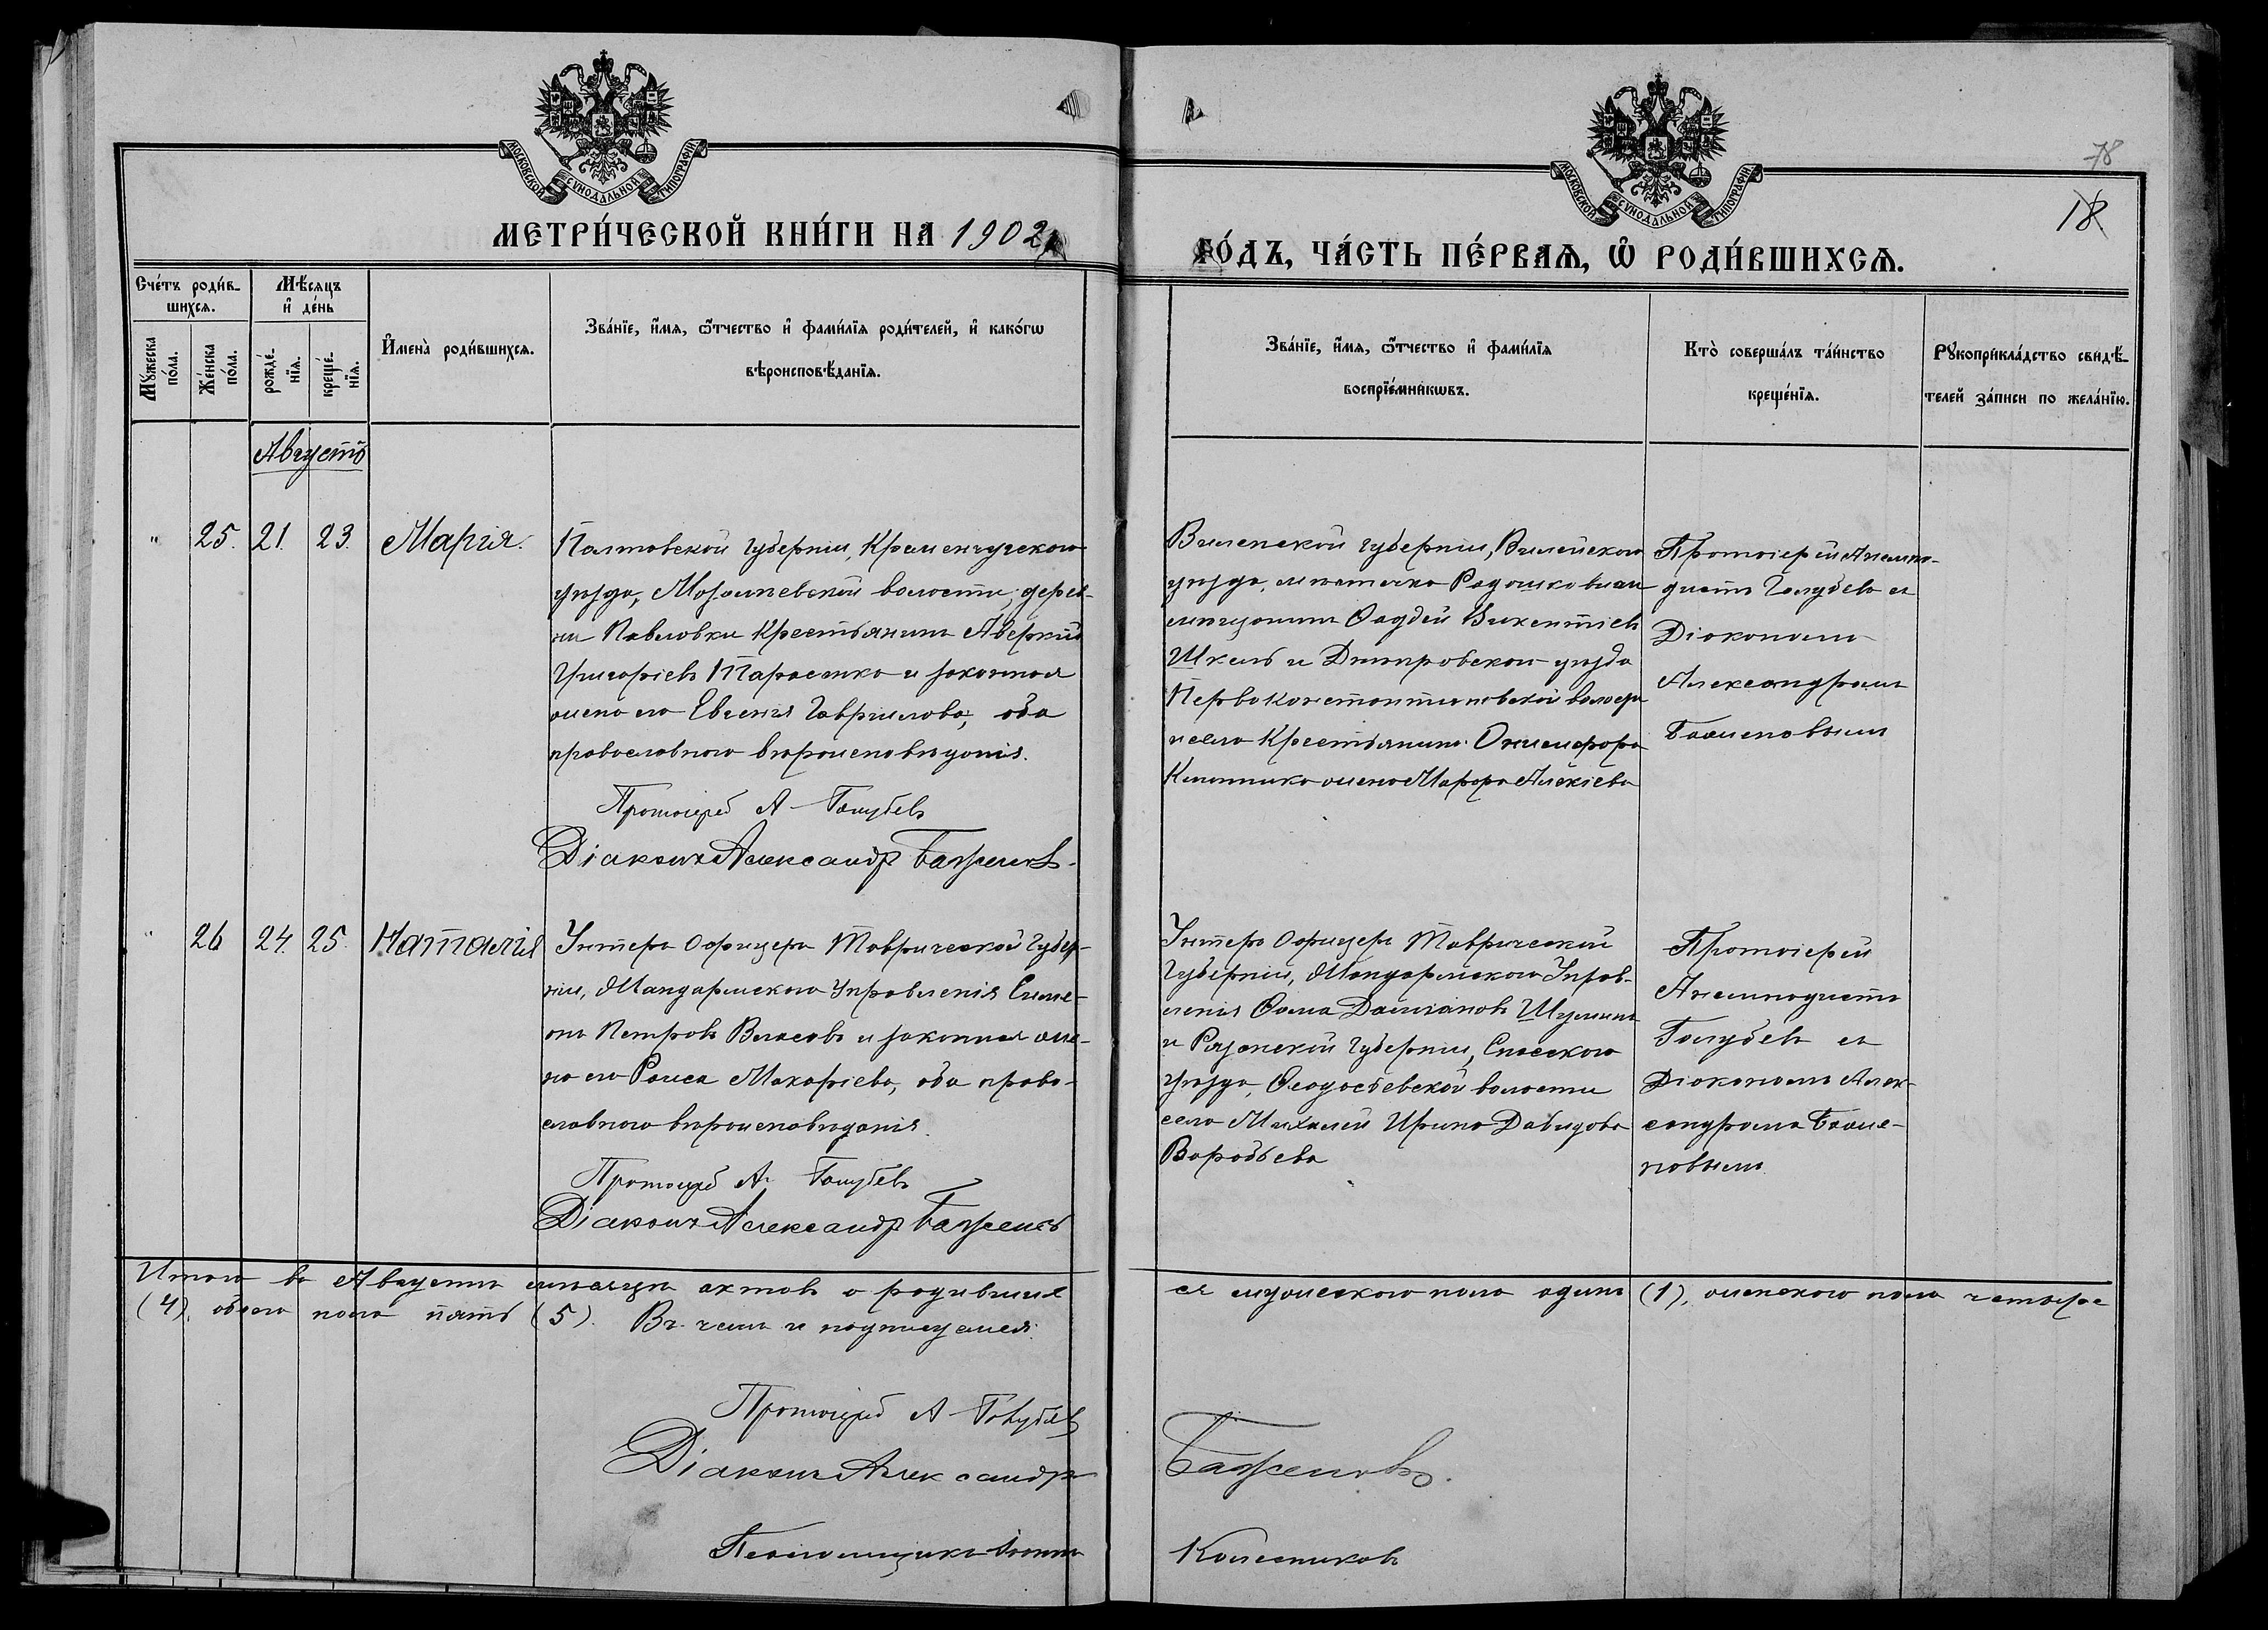 МОСКОВСКОЙ СУНОДАЛЬНОЙ ТИПОГРАФІИ
МОСКОВСКОЙ СУНОДАЛЬНОЙ ТИПОГРАФІИ
78
18
МЕТРИ́ЧЕСКОЙ КНИ́ГИ НА 1902
ГО́ДЪ, ЧА́СТЬ ПЕ́РВАЯ, Ѡ҆ РОДИ́ВШИХСЯ.
Сче́тъ роди́в-
шихся.
Му́жеска по́ла.
Же́нска по́ла.
Мѣ́сяцъ
и҆ де́нь
рожде́-
нїя.
креще́-
нїя.
И҆мена̀ роди́вшихся.
Зва́нїе, и҆́мя, ѻ҆́тчество и҆ фами́лїя роди́телей, и҆ како́гѡ
вѣроисповѣ́данїя.
Зва́нїе, и҆́мя, ѻ҆́тчество и҆ фами́лїя
воспрїе́мникѡвъ.
Кто̀ соверша́лъ та́инство
креще́нїя.
Рꙋкоприкла́дство свидѣ́-
телей за́писи по жела́нїю.
Августъ
" 25. 21. 23. Марія.
Полтавской губерніи, Кременчугского
уѣзда, волости, дерев-
ни Павловки крестьянинъ Аверкій
Григоріевъ Тарасенко и законная
жена его Евгенія Гаврилова, оба
православнаго вѣроисповѣданія.
Протоіерей А Голубевъ
Діаконъ Александръ Баженовъ.
Виленской губерніи, Вилейского
уѣзда, мѣстечка Радошковичи
мѣщанинъ Фаддей Викентіевъ
Шкель и Днѣпровскаго уѣзда
села крестьянина Онисифора
жена Алексіева
Протоіерей Анемпо-
дистъ Голубевъ съ
Діакономъ
Александромъ
Баженовымъ
" 26 24. 25. Наталія
Унтеръ Офицеръ Таврической Губер-
ніи, Жандармскаго Управленія Симе-
онъ Петровъ Власовъ и законная же-
на его Раиса Макаріева, оба право-
славнаго вѣроисповѣданія.
Протоіерей А. Голубевъ
Діаконъ Александръ Баженовъ
Унтеръ Офицеръ Таврической
Губерніи, Жандармскаго Управ-
ленія Фома Даміановъ
и Рязанской Губерніи, Спасскаго
уѣзда, Ѳеодосьевской волости
села Ирина Давидова
Воробьева
Протоіерей
Анемподистъ
Голубевъ съ
Діакономъ Алек-
сандромъ Баже-
новымъ.
Итого въ Августѣ мѣсяцѣ актовъ о родивших ся мужескаго пола одинъ (1), женскаго пола четыре
(4), обоего пола пять (5). Въ чемъ и подписуемся:
Протоіерей А Голубевъ
Діаконъ Александръ Баженовъ.
Псаломщикъ Іоаннъ Колесниковъ